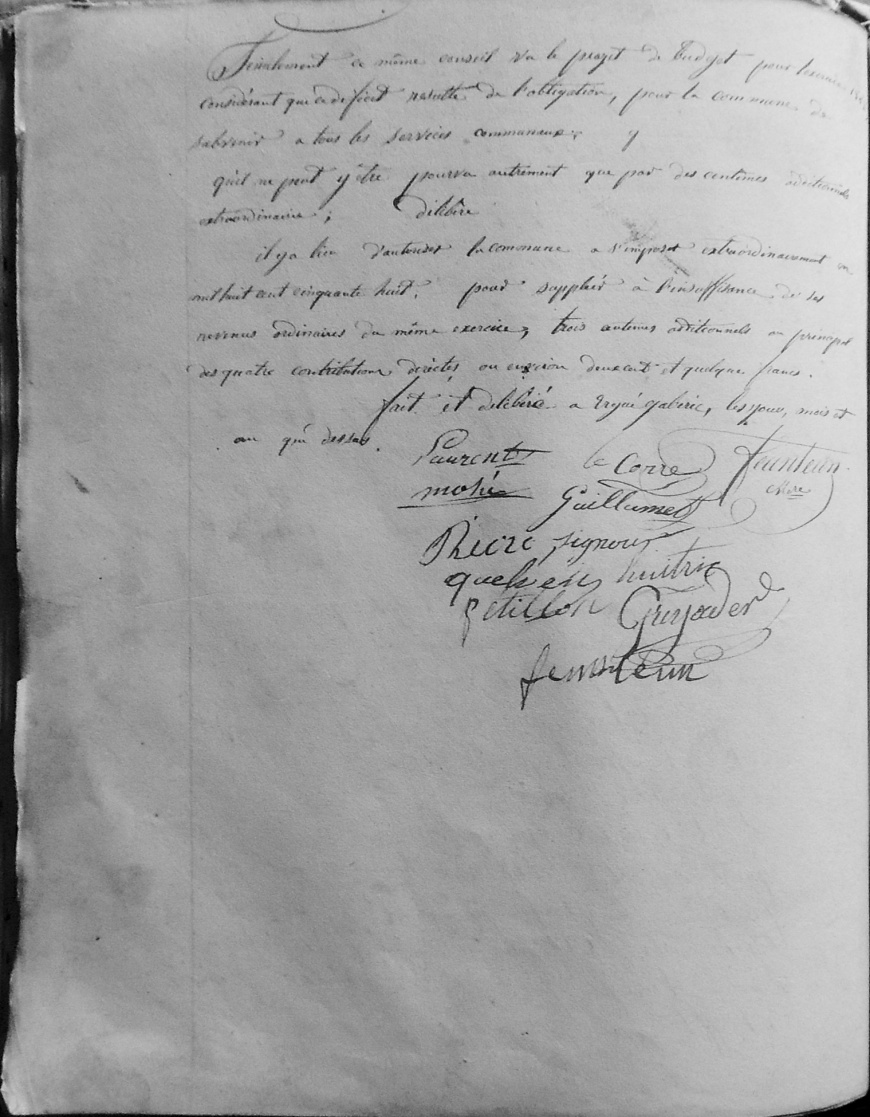 Finalement ce même conseil vu le projet de budget pour l'exercice
considérant que ce déficit résulte de l'obligation, pour la commune de
subvenir a tous les services communaux; y
qu'il ne peut y être pourvu autrement que par des centimes additionnels
extraordinaire; délibère
il y a lieu d'autoriser la commune a s'imposer extraordinairement en
mil huit cent cinquante huit. pour suppléer à l'insuffisance de ses
revenus ordinaires du même exercice, trois centimes additionnels au principal
des quatre contributions directes, ou environ deux cent et quelque francs.
fait et délibéré a Ergué gabéric, les jour, mois et
an que dessus.
Laurent le Corre feunteun
mahé Guillumet
Riere signour
quelven huitric
petillon
feunteun